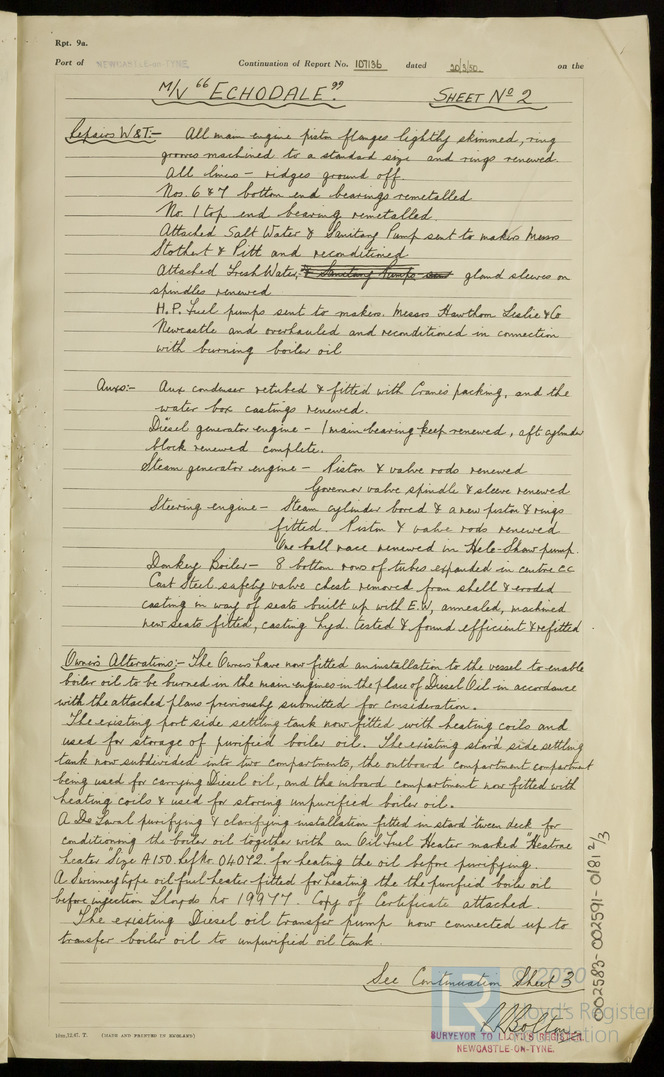 Rpt. 9a.
Port of NEWCASTLE-ON-TYNE. Continuation of Report No. 107136 dated 20/3/50 on the
M/V "ECHODALE". SHEET No 2
Repairs W&T:- All main engine piston flanges lightly skimmed, ring
grooves machined to a standard size and rings renewed.
All liners - ridges ground off.
Nos. 6 & 7 bottom end bearings remetalled
No. 1 top end bearing remetalled.
Attached Salt Water & Sanitary Pump sent to makers Messrs
Stothert & Pitt and reconditioned.
Attached Fresh Water, & Sanitary Pumps gland sleeves on
spindles renewed
H.P. Fuel pumps sent to makers. Messrs Hawthorn Leslie & Co
Newcastle and overhauled and reconditioned in connection
with burning boiler oil
Auxs:- Aux condenser retubed & fitted with Cranes packing, and the
water box castings renewed.
Diesel generator engine - 1 main bearing keep renewed, aft cylinder
block renewed complete.
Steam generator engine - Piston & valve rods renewed
Governor valve spindle & sleeve renewed
Steering engine - Steam cylinder bored & a new piston & rings
fitted. Piston & valve rods renewed
One ball race renewed in Hele-Shaw pump.
Donkey Boiler - 8 bottom rows of tubes expanded in centre c.c
Cast Steel safety valve chest removed from shell & eroded
casting in way of seats built up with E.W, annealed, machined
new seats fitted, casting hyd. tested & found efficient & refitted
Owners Alterations:- The Owners have now fitted an installation to the vessel to enable
boiler oil to be burned in the main engines in the place of Diesel Oil in accordance
with the attached plans previously submitted for consideration.
The existing port side settling tank now fitted with heating coils and
used for storage of purified boiler oil. The existing starb'd side settling
tank now subdivided into two compartments, the outboard compartment compartment
being used for carrying Diesel oil, and the inboard compartment now fitted with
heating coils & used for storing unpurified boiler oil.
A De Laval purifying & clarifying installation fitted in starb'd tween deck for
conditioning the boiler oil together with an Oil Fuel Heater marked "Heatrae
heater Size A150. Ref No. 04072" for heating the oil before purifying.
A Swinney type oil fuel heater fitted for heating the the purified boiler oil
before injection Lloyds no 19977. Copy of Certificate attached.
The existing Diesel oil transfer pump now connected up to
transfer boiler oil to unpurified oil tank.
See Continuation Sheet 3
R Bolton
SURVEYOR TO LLOYD'S REGISTER.
NEWCASTLE-ON-TYNE.
10m,12,47. T. (MADE AND PRINTED IN ENGLAND)
002583-002591-0181 2/3
LR
© 2020
Lloyd's Register
Foundation